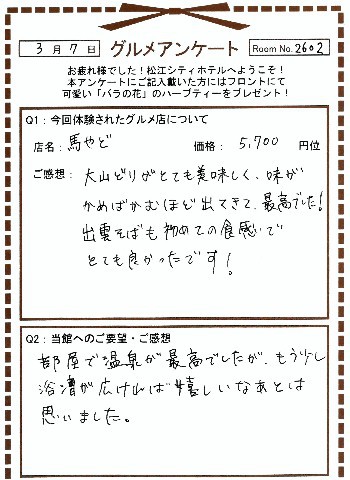 3月7日 グルメアンケート Room No. 2602
お疲れ様でした！松江シティホテルへようこそ！
本アンケートにご記入戴いた方にはフロントにて
可愛い「バラの花」のハーブティーをプレゼント！
Q1：今回体験されたグルメ店について
店名：馬やど 価格：5,700 円位
ご感想：大山どりがとても美味しく、味が
かめばかむほど出てきて、最高でした！
出雲そばも初めての食感いで
とても良かったです！
Q2：当館へのご要望・ご感想
部屋で温泉が最高でしたが、もう少し
浴漕が広ければ嬉しいなあとは
思いました。